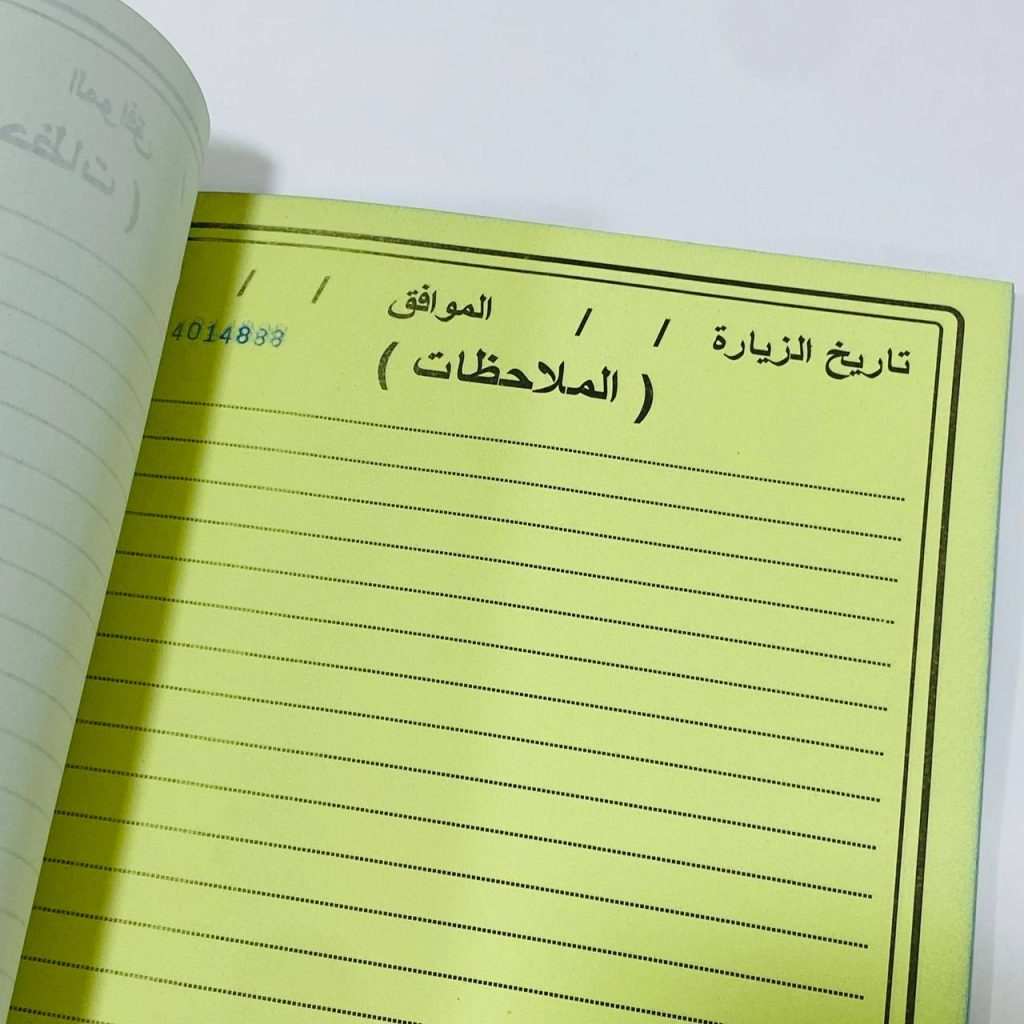 تاريخ الزيارة / / الموافق / /
4014888
( الملاحظات )